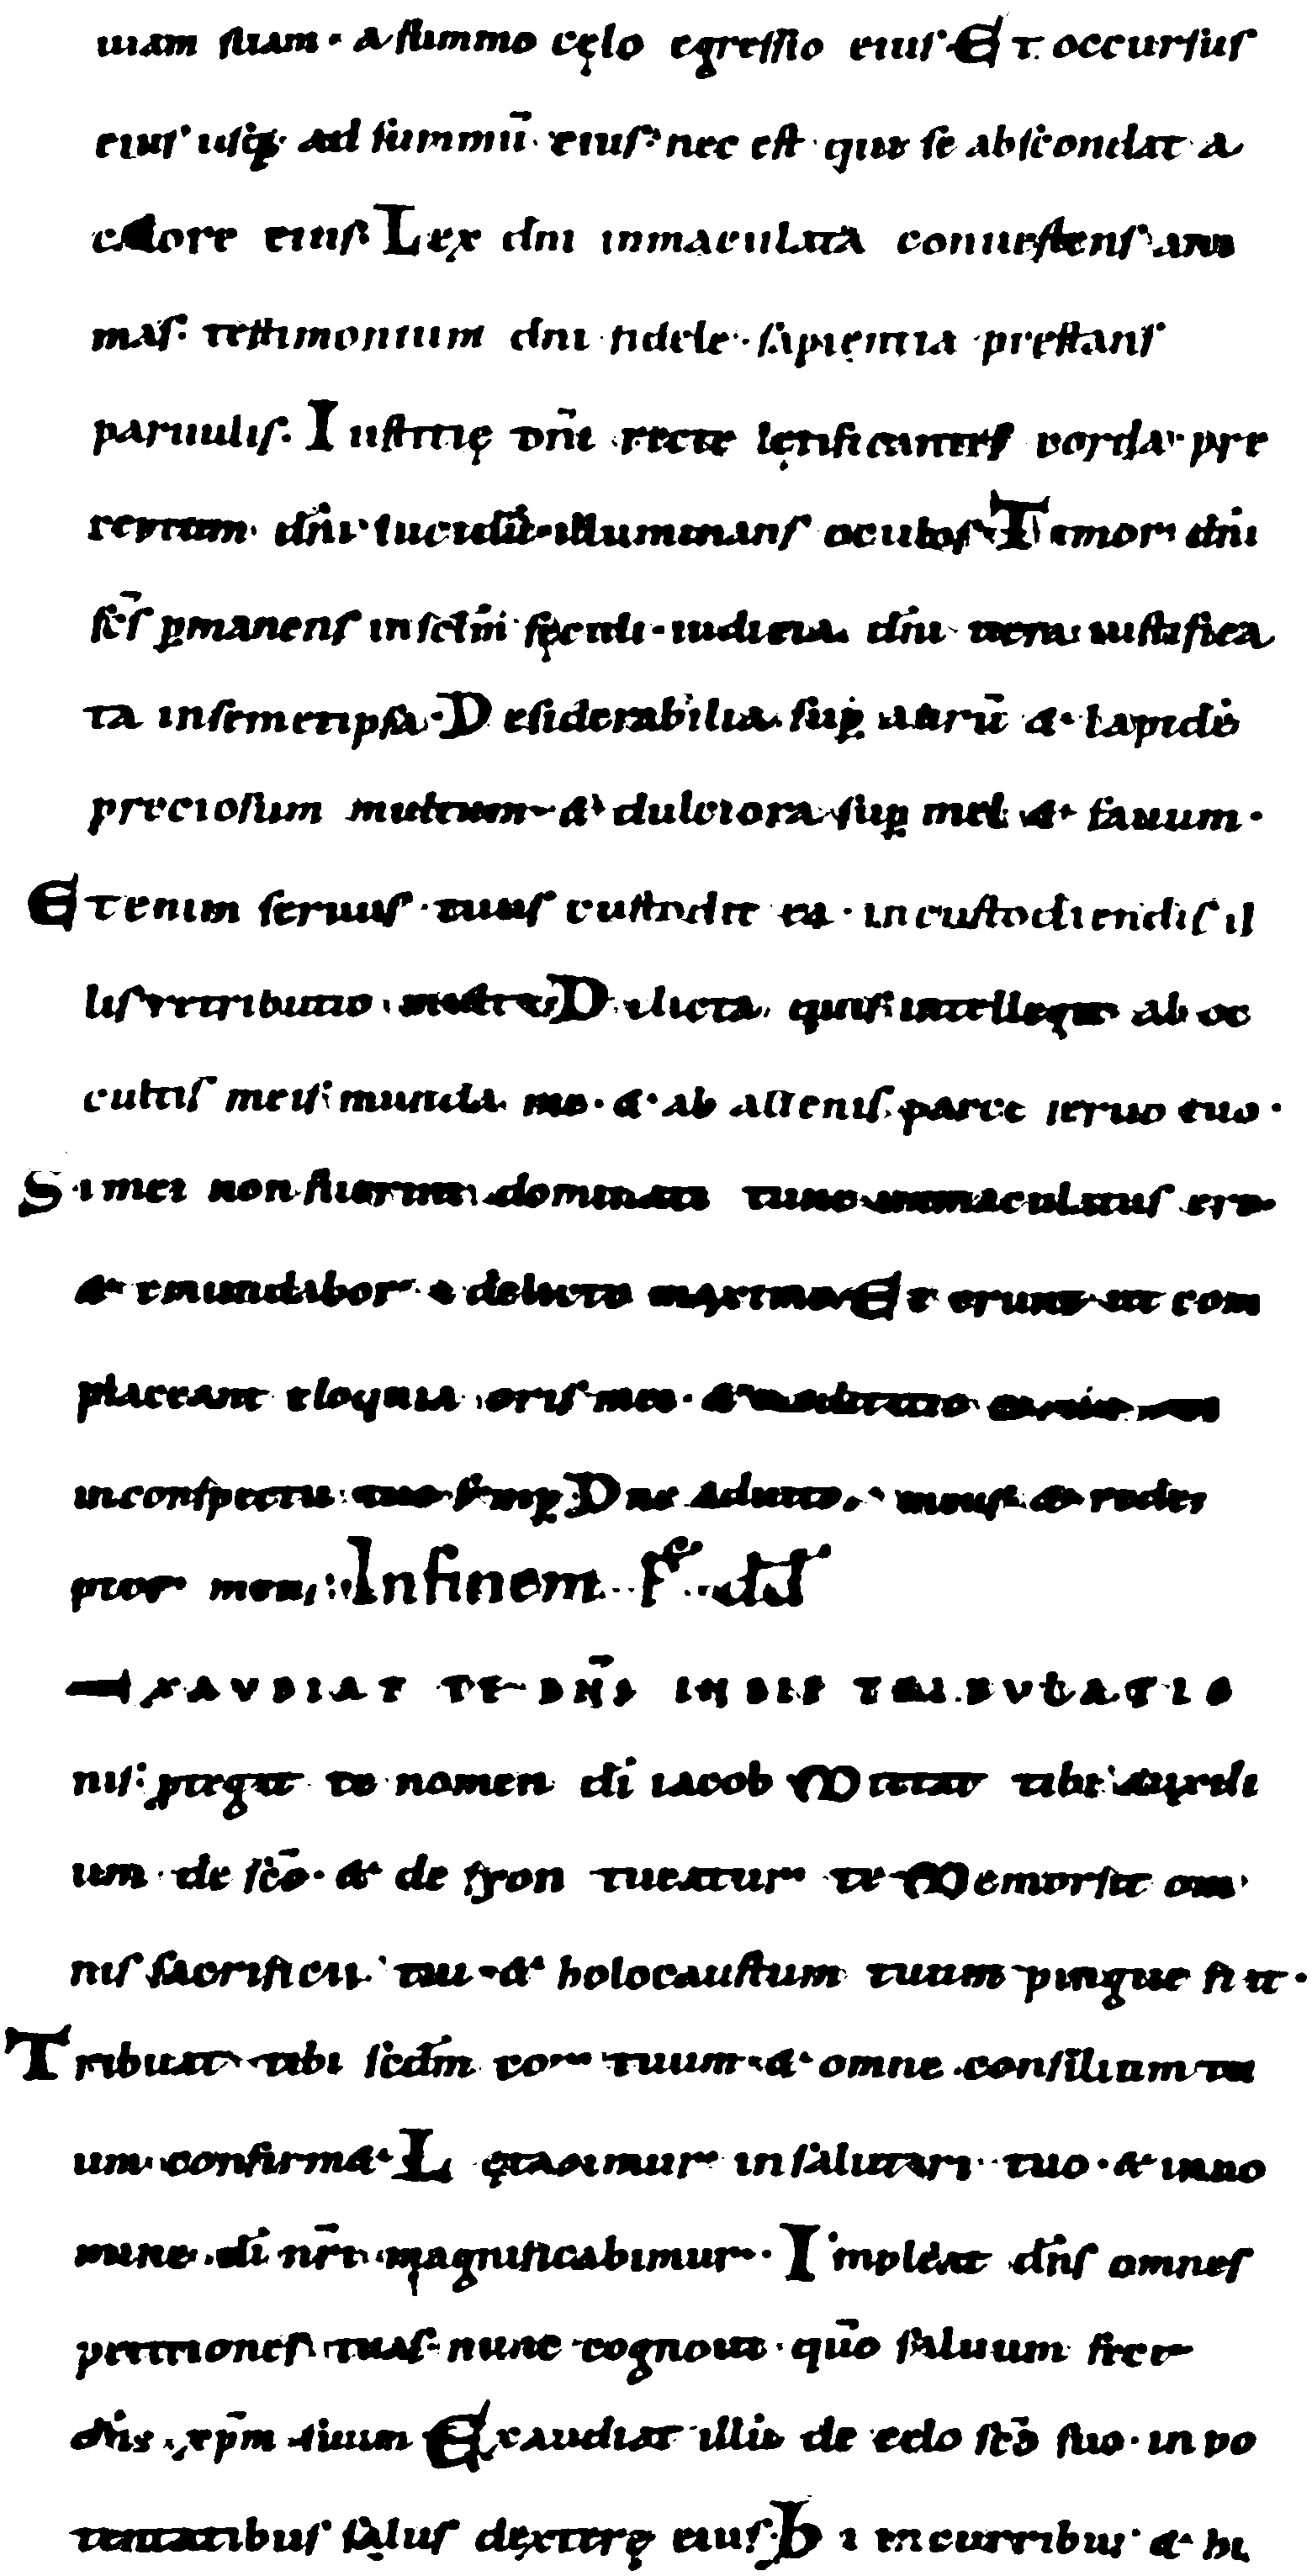 uiam suam · a summo cęlo egressio eius · Et occursus
eius usq; ad summū eius · nec est qui se abscondat a
calore eius · Lex dni inmaculata conuertens ani
mas · testimonium dni fidele · sapientia prestans
paruulis · Iustitię dn̄i recte lętificantes corda · pre
ceptum dn̄i lucidū · illuminans oculos · Timor dn̄i
sc̄s ꝑmanens in sclm̄ sęculi · iudicia dn̄i uera iustifica
ta insemetipsa · Desiderabilia suꝑ aurū & lapidē
preciosum multum · & dulciora suꝑ mel & fauum ·
Etenim seruus tuus custodit ea · in custodiendis il
lis retributio multa · Delicta quis intellegit ab oc
cultis meis munda me · & ab alienis parce seruo tuo ·
Si mei non fuerint dominati tunc inmaculatus ero
& emundabor a delicto maximo Et erunt ut com
placeant eloquia oris mei · & meditatio cordis mei
in conspectu tuo semꝑ · Dne adiutor meus & redem
ptor meus · In finem · ps · dd
EXAUDIAT TE DN̄S IN DIE TRIBULATIO
nis · ptegat te nomen di iacob Mittat tibi auxili
um de sc̄o · & de syon tueatur te Memor sit om
nis sacrificii tui · & holocaustum tuum pingue fiat ·
Tribuat tibi scdm̄ cor tuum · & omne consilium tu
um confirm& · Lętabimur in salutari tuo · & in no
mine di nr̄i magnificabimur · Impleat dn̄s omnes
petitiones tuas · nunc cognoui · qūo saluum fecit
dn̄s xp̄m suum Exaudiat illū de celo sc̄o suo · in po
tentatibus salus dexterę eius · Hi in curribus & hi